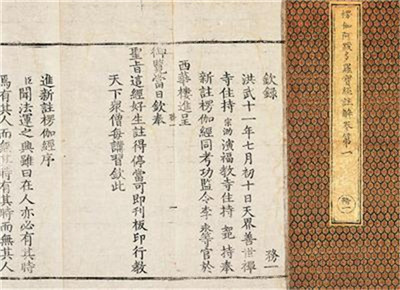 楞伽阿跋多羅寶經註解卷第一
務一
欽錄 務一
洪武十一年七月初十日天界善世禪
寺住持宗泐演福教寺住持 持奉
新註楞伽經同考功監令李 等官於
西華樓進呈
務一
御覽當日欽奉
聖旨這經好生註得停當可即刊板印行教
天下眾僧每講習欽此
進新註楞伽經序
臣聞法運之興雖曰在人亦必有其時
焉有其人而無其時有其時而無其人